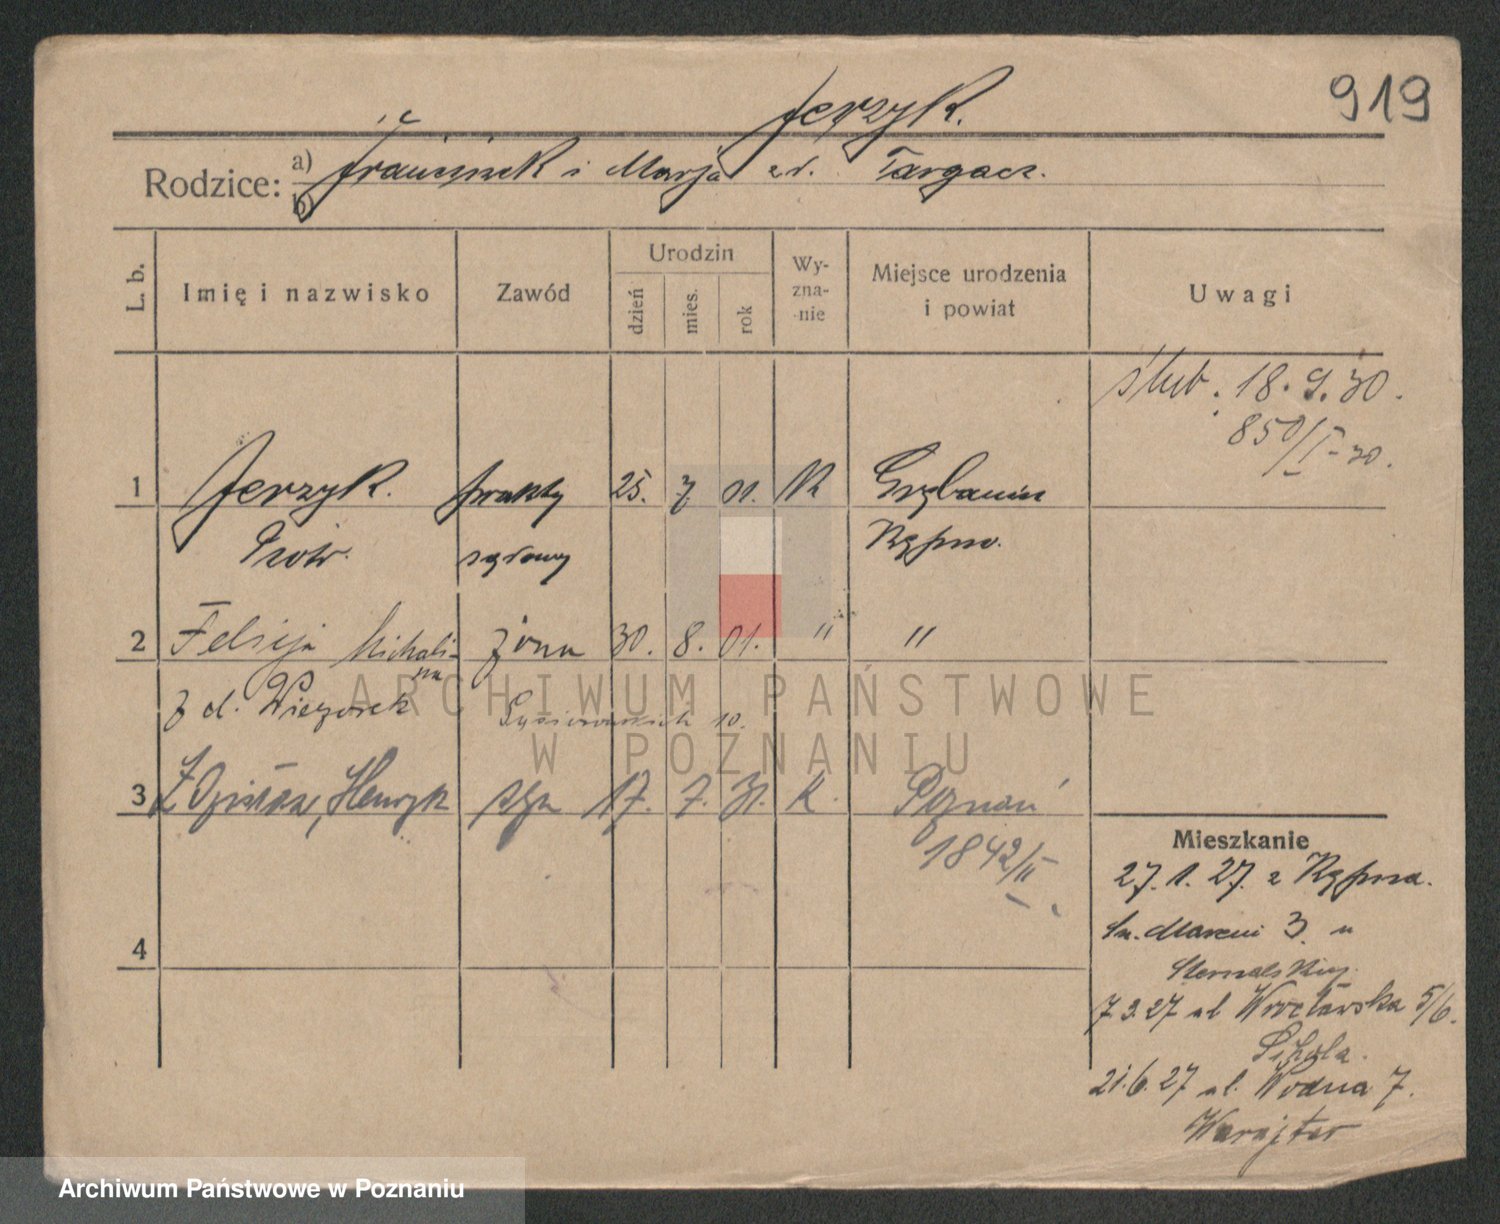 919
Jerzyk.
Rodzice: a) Franciszek i Marja z d. Targacz.
b)
L. b.
Imię i nazwisko
Zawód
Urodzin
dzień
mies.
rok
Wy-
zna-
nie
Miejsce urodzenia
i powiat
Uwagi
ślub. 18. 9. 30.
850/I-30.
1 Jerzyk. 25. 7. 01. Grębanin
Piotr. sądowy Kępno.
2 Felicja Michali- żona 30. 8. 01. " "
na
z d. Wieczorek 10.
3 Zdzisław, Henryk syn 17. 7. 31. k. Poznań
1842/II
4
Mieszkanie
27. 1. 27. z Kępna.
Św. Marcin 3. u
7. 3. 27 ul Wrocławska 5/6.
Sikola.
21. 6. 27 ul. Wodna 7.
ARCHIWUM PAŃSTWOWE
W POZNANIU
Archiwum Państwowe w Poznaniu